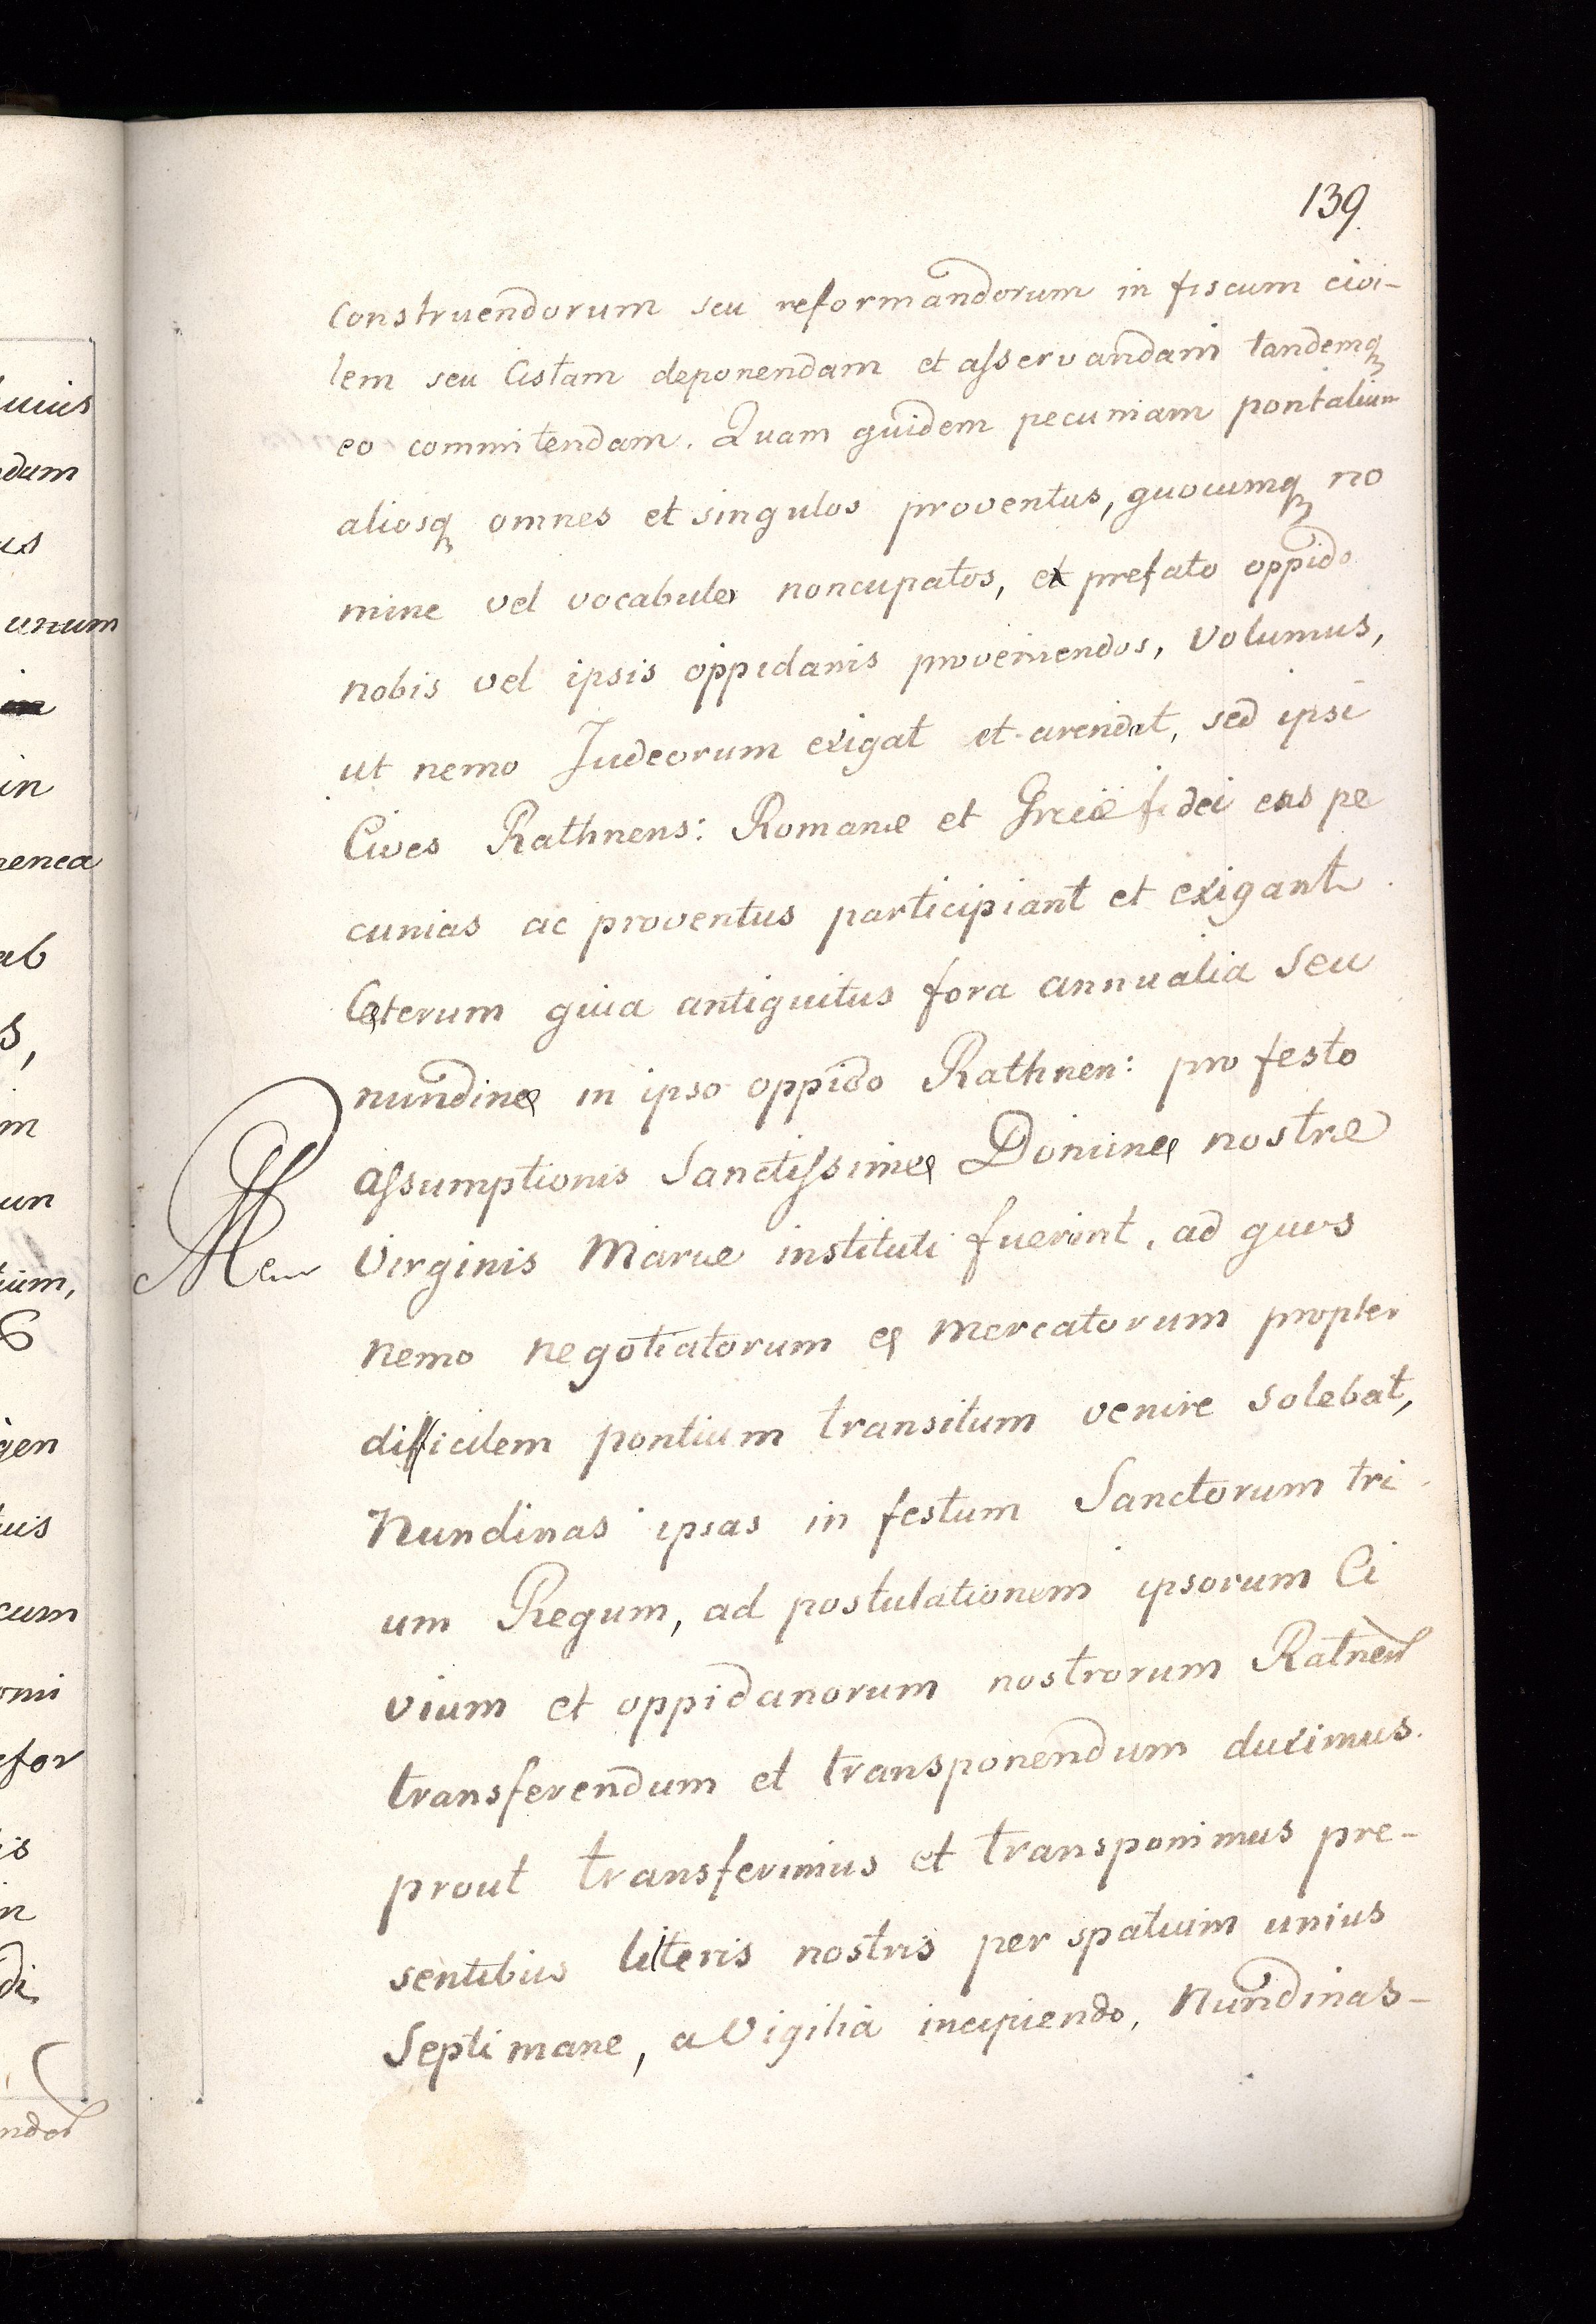 139.
construendorum seu reformandorum in fiscum civi-
lem seu Cistam deponendam et asservandam tandemq
eo commitendam. Quam quidem pecuniam pontalium
aliosq omnes et singulos proventus, quocumq no
mine vel vocabulo noncupatos, ex prefato oppido
nobis vel ipsis oppidanis proveniendos, volumus,
ut nemo Judeorum exigat et arendet, sed ipsi
Cives Rathnens: Romanæ et Græcæ fidei eas pe
cunias ac proventus participiant et exigant
Cęterum quia antiquitus fora annualia seu
nundinę in ipso oppido Rathnen: pro festo
assumptionis Sanctissimę Dominę nostræ
Virginis Mariæ instituti fuerint, ad quos
nemo negotiatorum et mercatorum propter
difficilem pontium transitum venire solebat,
Nundinas ipsas in festum Sanctorum tri
um Regum, ad postulationem ipsorum Ci
vium et oppidanorum nostrorum Ratnen
transferendum et transponendum duximus.
prout transferimus et transponimus pre-
sentibus litteris nostris per spatium unius
Septimane, a Vigilia incipiendo, Nundinas-
unum
in
ab
um
gen
cum
is
di